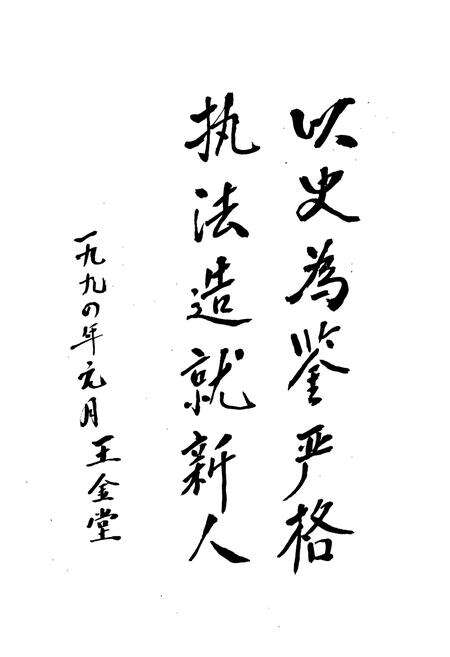 以史為鉴严格
执法造就新人
一九九四年元月
王金堂